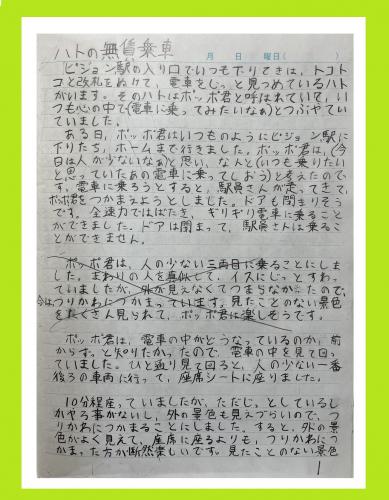 ハトの無賃乗車
月 日 曜日( )
ピジョン駅の入り口でいつも下りてきは、トコト
コと改札をぬけて、電車をじっと見つめているハト
がいます。そのハトはポッポ君と呼ばれていて、い
つも心の中で(電車に乗ってみたいなぁ)とつぶやい
ていました。
ある日、ポッポ君はいつものようにピジョン駅に
下りたち、ホームまで行きました。ポッポ君は、(今
日は人が少ないなぁ)と思い、なんと(いつも乗りたい
と思っていたあの電車に乗ってしまおう)と考えたので
す。電車に乗ろうとすると、駅員さんが走ってきて、
ポッポ君をつかまえようとしました。ドアも閉まりそう
です。全速力ではばたき、ギリギリ電車に乗ること
ができました。ドアは閉まって、駅員さんは乗るこ
とができません。
ポッポ君は、人の少ない三両目に乗ることにしま
した。まわりの人を真似して、イスにじっとすわっ
ていましたが、外が見えなくてつまらなかったので、
今はつりかわにつかまっています。見たことのない景色
をたくさん見られて、ポッポ君は楽しそうです。
ポッポ君は、電車の中がどうなっているのか、前
からずっと知りたかったので、電車の中を見て回っ
ていました。ひと通り見て回ると、人の少ない一番
後ろの車両に行って、座席シートに座りました。
10分程座っていましたが、ただじっとしているし
かやる事がないし、外の景色も見えづらいので、つ
りかわにつかまることにしました。すると、外の景
色がよく見えて、座席に座るよりも、つりかわにつ
かまった方が断然楽しいです。見たことのない景色
1